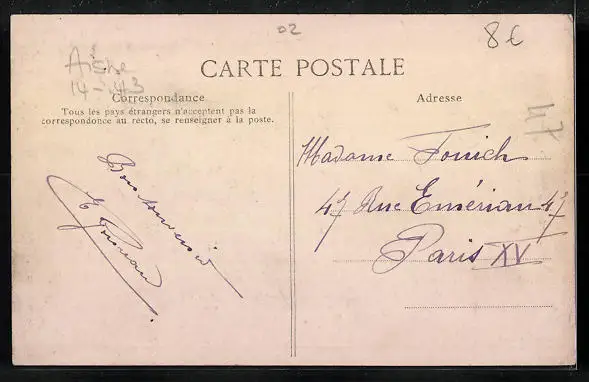 02
8€
Aisne
14-
CARTE POSTALE
Correspondance
Tous les pays étrangers n'acceptent pas la
correspondance au recto, se renseigner à la poste.
Bon souvenir
Adresse
47
Madame
47 Rue 47
Paris XV